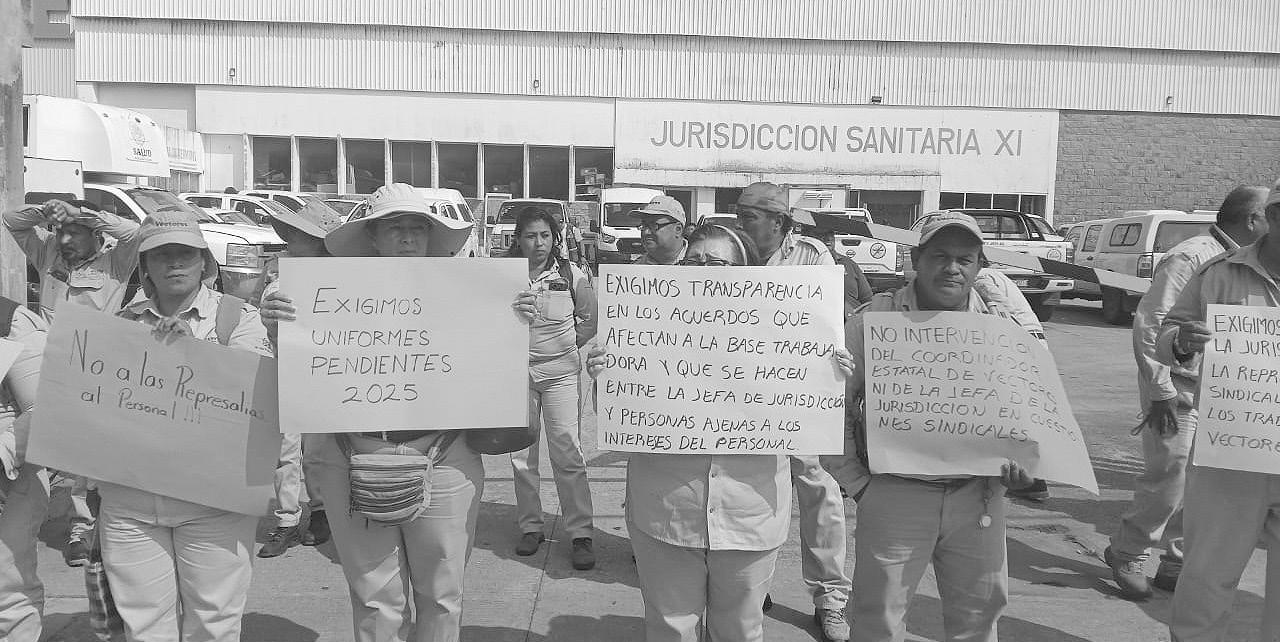 JURISDICCION SANITARIA XI
SALUD
Vectores
No a las Represalias
al Personal !!!
EXIGIMOS
UNIFORMES
PENDIENTES
2025
EXIGIMOS TRANSPARENCIA
EN LOS ACUERDOS QUE
AFECTAN A LA BASE TRABAJA
DORA Y QUE SE HACEN
ENTRE LA JEFA DE JURISDICCIÓN
Y PERSONAS AJENAS A LOS
INTERESES DEL PERSONAL
NO INTERVENCION
DEL COORDINADOR
ESTATAL DE VECTORES
NI DE LA JEFA DE LA
JURISDICCION EN CUESTIO
NES SINDICALES
EXIGIMOS
LA JURIS
LA REPR
SINDICAL
LOS TRA
VECTORE